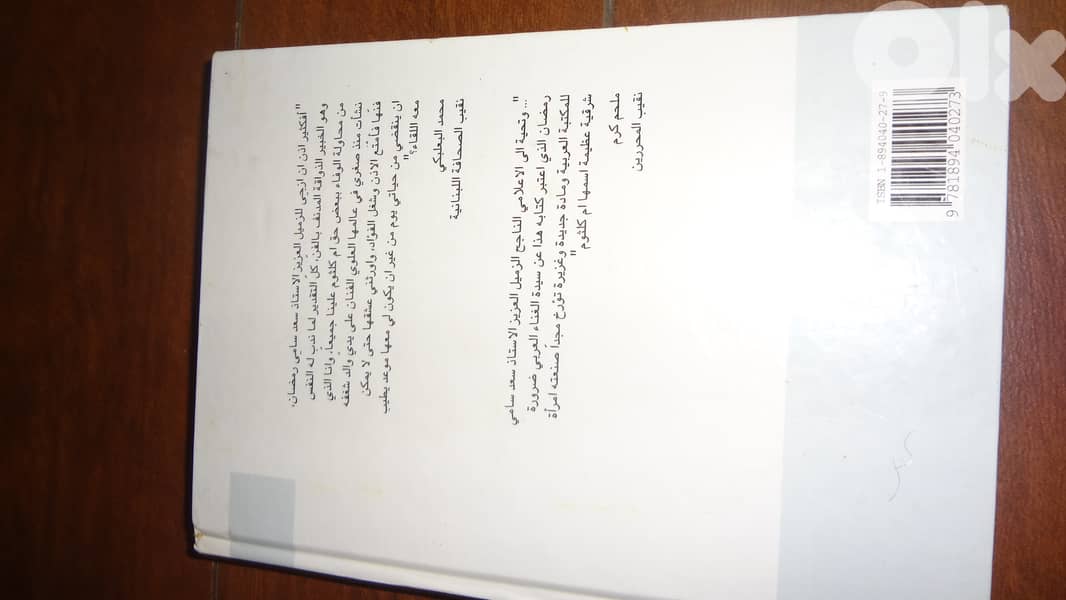 "أفكثير اذن ان ازجي للزميل العزيز الاستاذ سعد سامي رمضان،
وهو الخبير الذواقة المدنف بالفن، كل التقدير لما ندب له النفس
من محاولة الوفاء ببعض حق ام كلثوم علينا جميعاً، وانا الذي
نشأت منذ صغري في عالمها العلوي الفنان على يدي والد شغفه
فنها فأمتع الاذن وشغل الفؤاد، واورثني عشقها حتى لا يمكن
ان ينقضي من حياتي يوم من غير ان يكون لي معها موعد يطيب
معه اللقاء؟"
محمد البعلبكي
نقيب الصحافة اللبنانية
"...وتحية الى الاعلامي الناجح الزميل العزيز الاستاذ سعد سامي
رمضان الذي اعتبر كتابه هذا عن سيدة الغناء العربي ضرورة
للمكتبة العربية ومادة جديدة وغزيرة تؤرخ مجداً صنعته امرأة
شرقية عظيمة اسمها ام كلثوم"
ملحم كرم
نقيب المحررين
ISBN 1-894040-27-9
9 781894 040273
olx